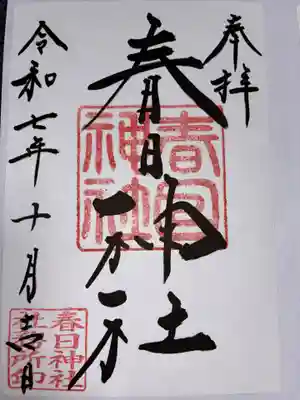 奉拝
春日神社
春日
神社
令和七年十月
春日神社
社務所印